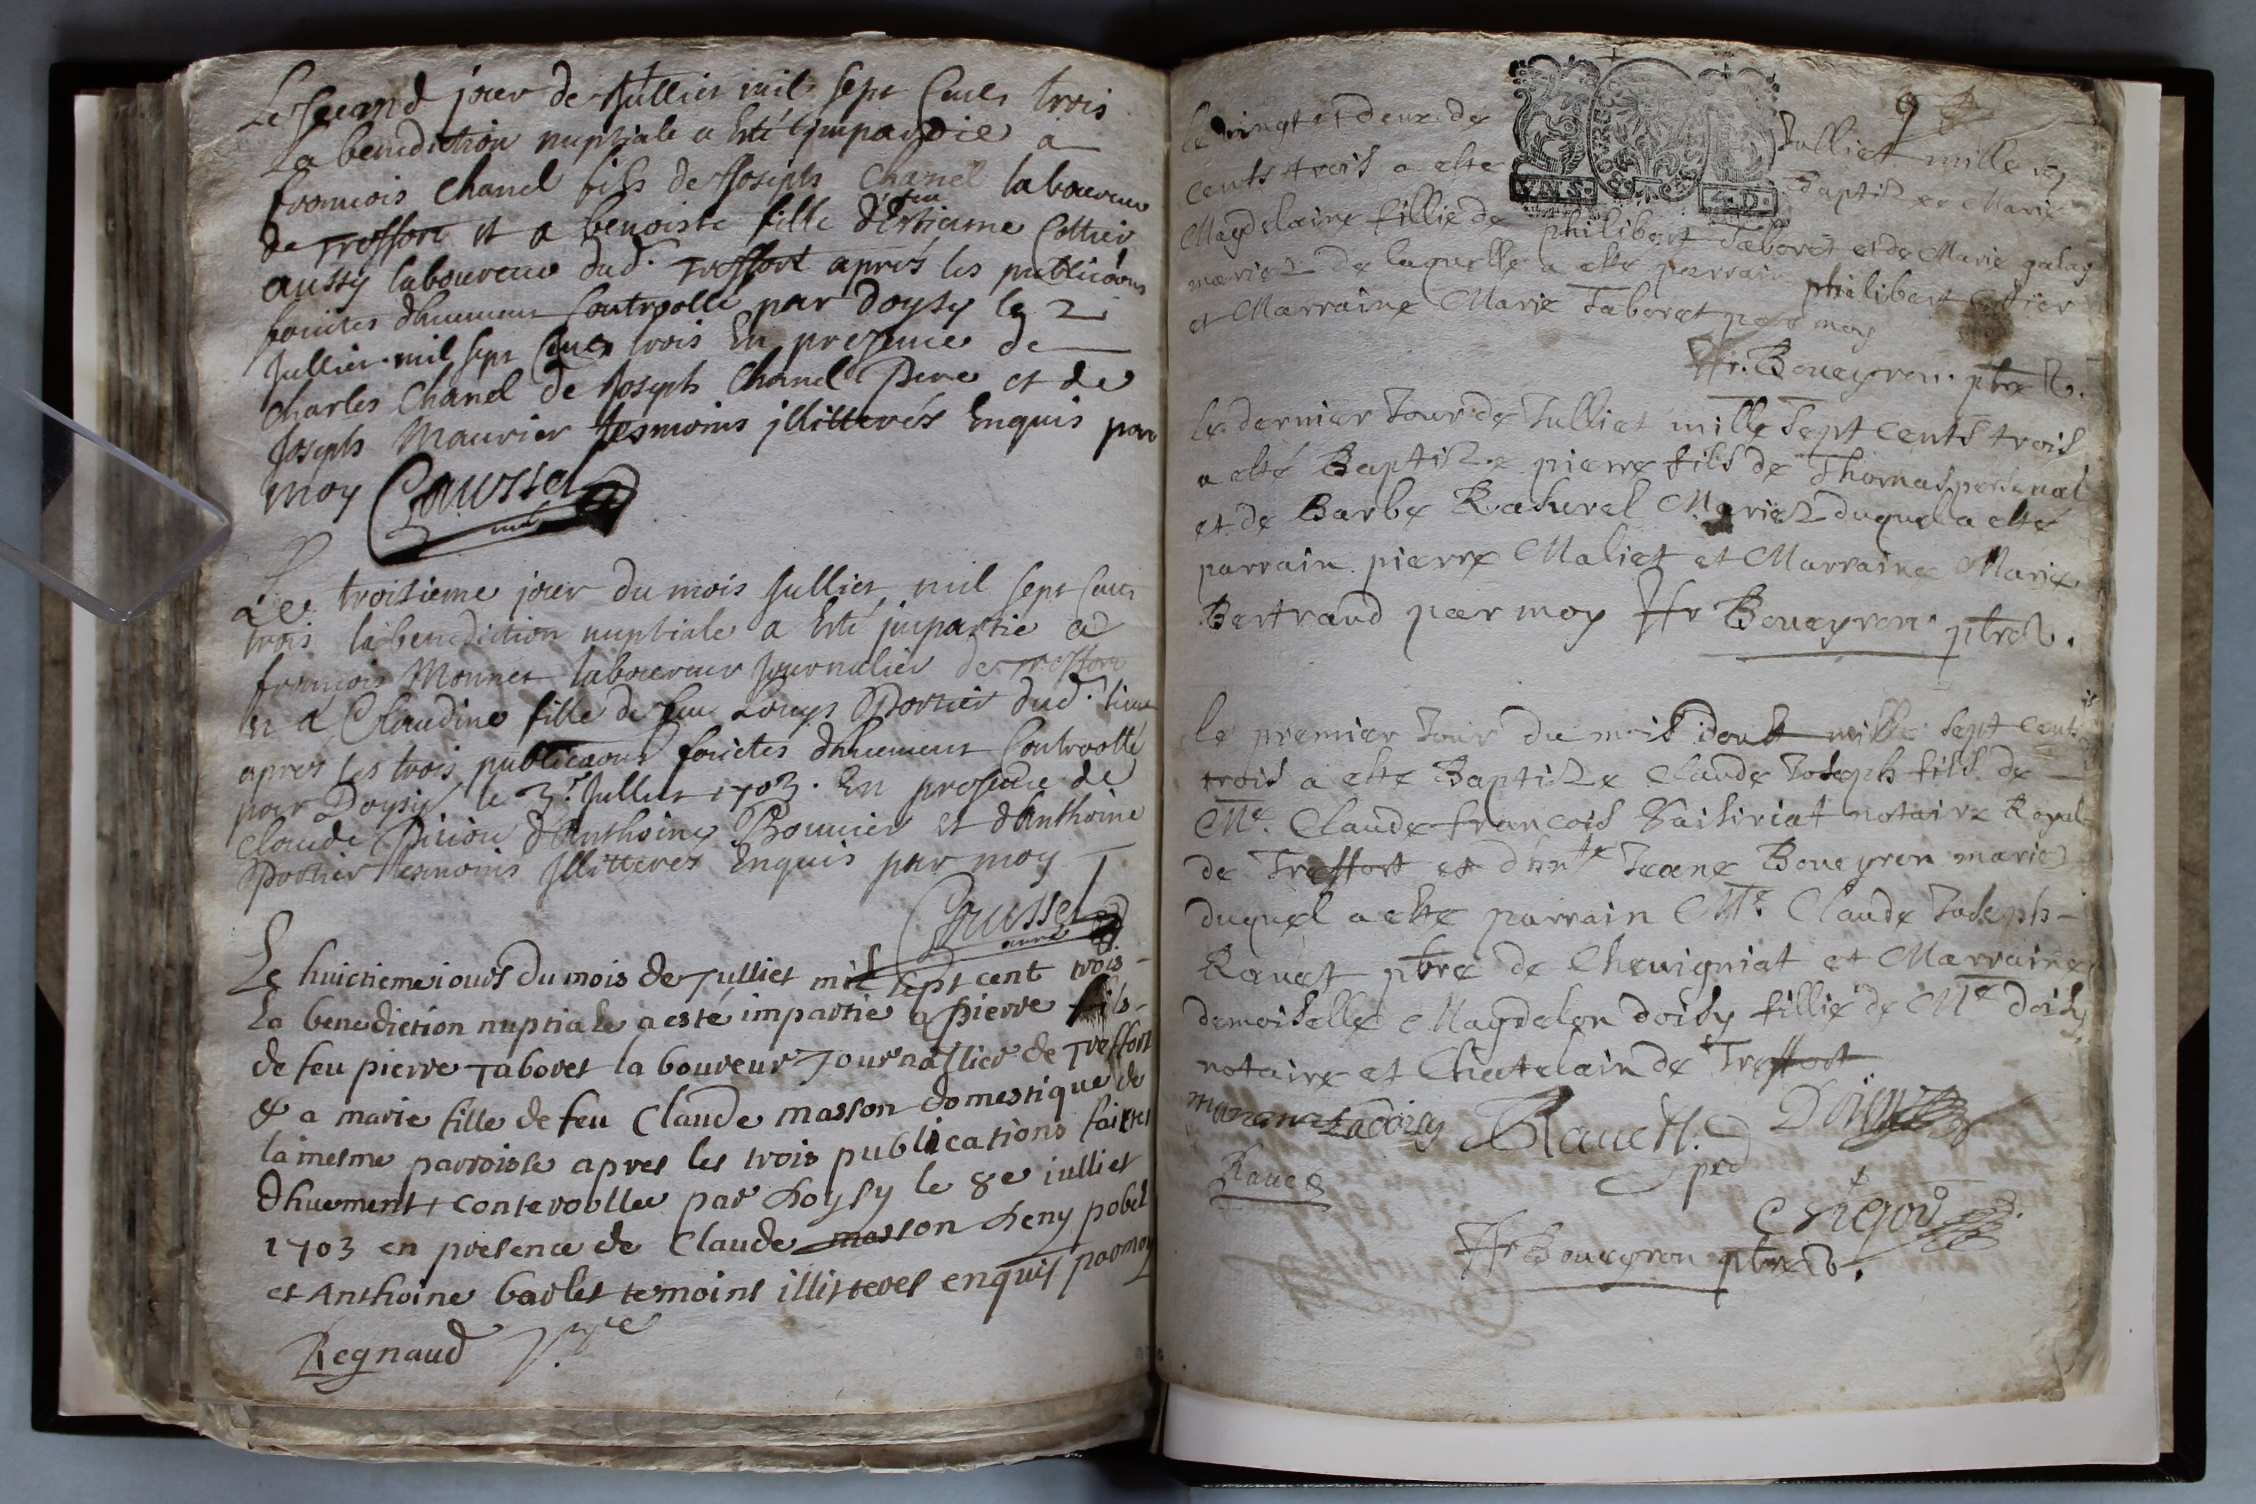 Le second jour de Jullier mil sept Cents trois
La benediction nuptiale a Esté jmpartie a
francois Chanel fils de Joseph Chanel laboureur
de Treffort et a benoiste fille d'Estienne Cottier
feu
aussy laboureur dud. Treffort aprés les publicaons
faictes dhuement Controolle par Doysy le 2
Jullier mil sept Cents trois En presence de
Charles Chanel de Joseph Chanel Pere et de
Joseph Maurier tesmoins jllitterés Enquis par
moy Caussel
Le troisieme jour du mois Jullier mil sept Cents
trois la benediction nuptiale a Esté jmpartie a
francois Monnet laboureur Journalier de Treffort
et a Claudine fille de feu Louys Portier dud. lieu
apres les trois publicaons faictes dhuement Controollé
par Doysy le 3e Jullier 1703. En presence de
Claude Pirion d'Anthoine Bonnier et d'Anthoine
Portier tesmoins Jllitteres Enquis par moy
Caussel
Le huictieme iours du mois de Julliet mil sept cent trois
La benediction nuptiale a esté impartie a pierre fils
de feu pierre Taboret laboureur Journallier de Treffort
& a marie fille de feu Claude masson domestique de
la mesme parroisse apres les trois publications faictes
dhuement conteroolle par Doysy le 8e iulliet
1703 en presence de Claude masson Deny pobel
et Anthoine barlet temoins illisteres enquis par moy
Regnaud vre
9
le vingt et deux de Julliet mille sept
cents trois a este Baptize Marie
Magdelaine fillie de philibert Taboret et de Marie
mariez de laquelle a este parrain philibert Cottier
et Marraine Marie Taboret par moy
Fr. Boueyron. pbre V.
VNS. 4.D.
le dernier Jour de Julliet mille sept cents trois
a esté Baptize pierre fils de Thomas
et de Barbe Mariez duquel a esté
parrain pierre Maliet et Marraine Marie
Bertrand par moy Fr Boueyron. pbre V.
le premier Jour du mois doust mille sept cents
trois a este Baptize Claude Joseph fils de
Me. Claude francois Vaisiriat notaire Royal
de Treffort et d'hnte Jeane Boueyron mariez
duquel a este parrain Mre. Claude Joseph
Rauet pbre de Cheuigniat et Marraine
demoiselle Magdelon doisy fillie de Me doisy
notaire et Chatelain de Treffort
Rauet. pbr
Rauet
Fr Boueyron pbre V.